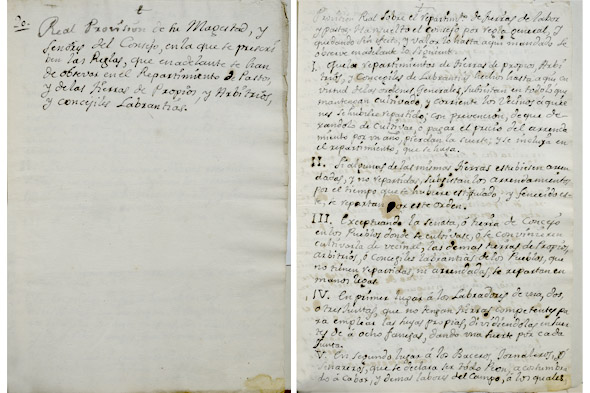 Real Provision de su Magestad, y
Señores del Consejo, en la que se prescri
ben las Reglas, que en adelante se han
de observar en el Repartimiento de Pastos,
y de las tierras de Propios, y Arbitrios,
y concegiles Labrantias.
Provision Real sobre el repartimto de tierras de labor
y pastos. Ha resuelto el consejo por regla general, y
quedando sin efecto, y valor lo hasta aqui mandado se
observe en adelante lo siguiente
I. Que los repartimientos de tierras de propios Arbi
trios, y Concegiles de Labrantias hechos hasta aqui en
virtud de las ordenes Generales, subsistan en todo lo que
mantengan cultivado, y corriente los vecinos a quie
nes se hubiere repartido; con prevencion, de que de
xandolo de Cultivar, o pagar el precio del arrenda
miento por un año, pierdan la suerte, y se incluya en
el repartimiento, que se haga.
II. Si algunas de las mismas tierras estubiesen arren
dadas, y no repartidas, subsistan los arrendamientos
por el tiempo que se hubiere estipulado, y fenecido es
te, se repartan por este orden.
III. Exceptuando la senara, o tierra de Concejo
en los Pueblos donde se cultivase, o se conviniere en
cultivarla de vecinal; las demas tierras de Propios,
arbitrios, o Concegiles labrantias de los Pueblos, que
no tienen repartidas ni arrendadas, se repartan en
manos legas.
IV. En primer lugar á los Labradores de una, dos,
o tres Juntas, que no tengan tierras competentes pa
ra emplear las suyas propias, dividiendolas en suer
tes de á ocho fanegas, dando una suerte por cada
Junta.
V. En segundo lugar á los Braceros, Jornaleros, o
Senareros, que se declara ser todo Peon, acostumbra
do á Cabar, y demas labores del campo, á los quales